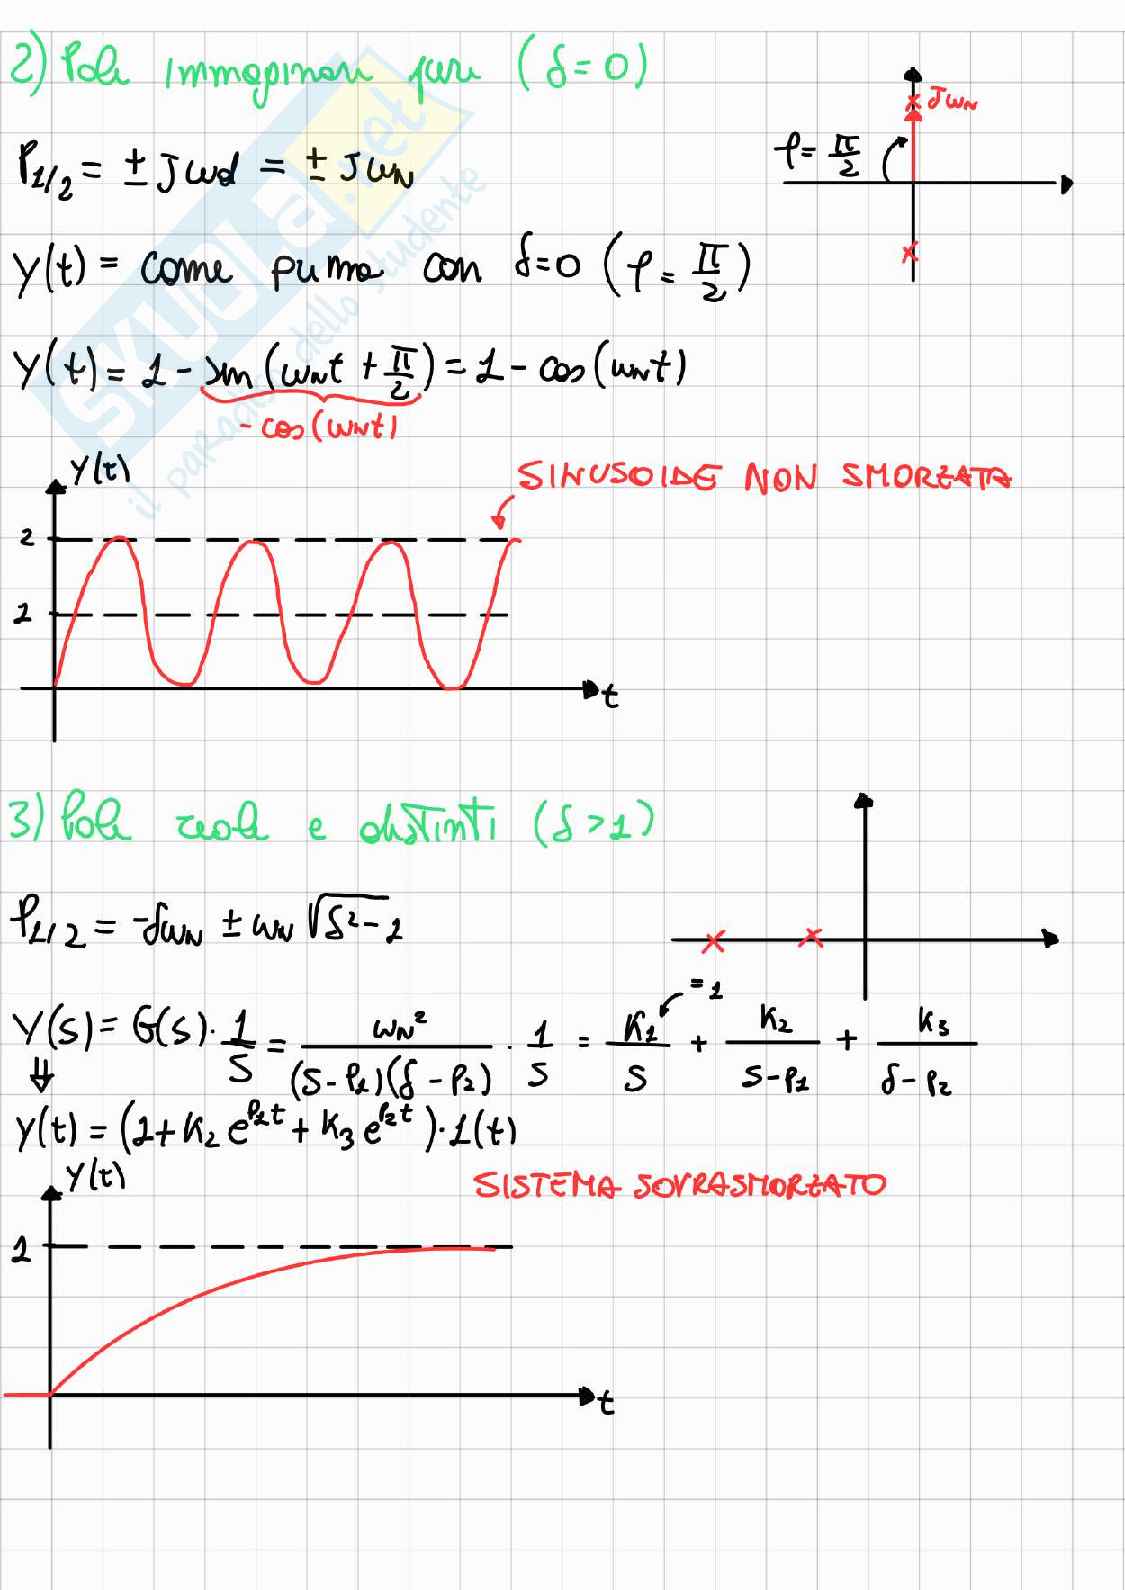 2) Poli immaginari puri (δ=0)
Jωn
φ= π/2
P1/2 = ± Jωd = ± Jωn
y(t) = come prima con δ=0 (φ= π/2)
y(t) = 1 - sin(ωnt + π/2) = 1 - cos(ωnt)
- cos(ωnt)
y(t)
SINUSOIDE NON SMORZATA
2
1
t
3) Poli reali e distinti (δ>1)
P1/2 = -δωn ± ωn √δ²-1
=1
Y(s) = G(s)·1/s = ωn²/(s-P1)(s-P2) · 1/s = K1/s + K2/s-P1 + K3/s-P2
⇓
y(t) = (1+K2 e^P1t + K3 e^P2t)·1(t)
y(t)
SISTEMA SOVRASMORZATO
1
t
SKUOLA.net
il paradiso dello studente